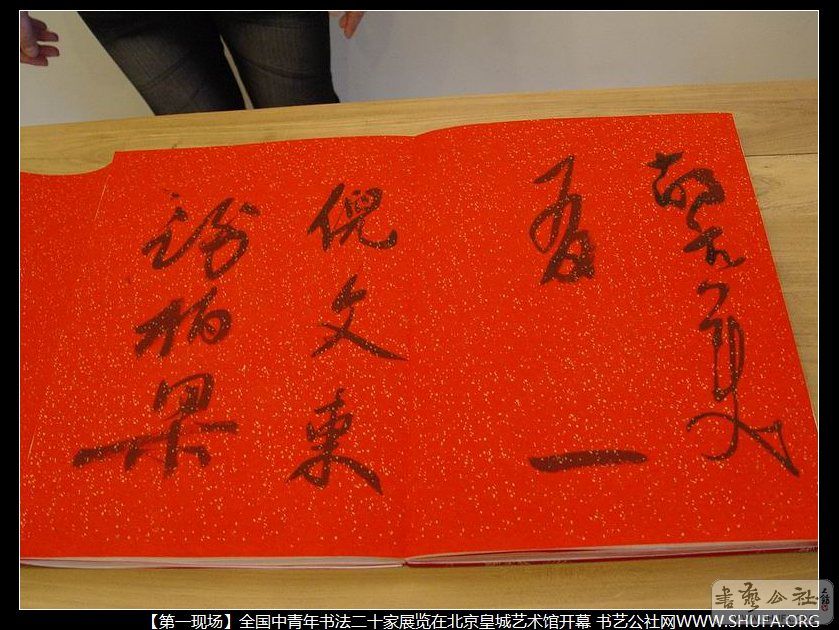 一
倪文東
柏果
書藝公社
【第一现场】全国中青年书法二十家展览在北京皇城艺术馆开幕 书艺公社网WWW.SHUFA.ORG